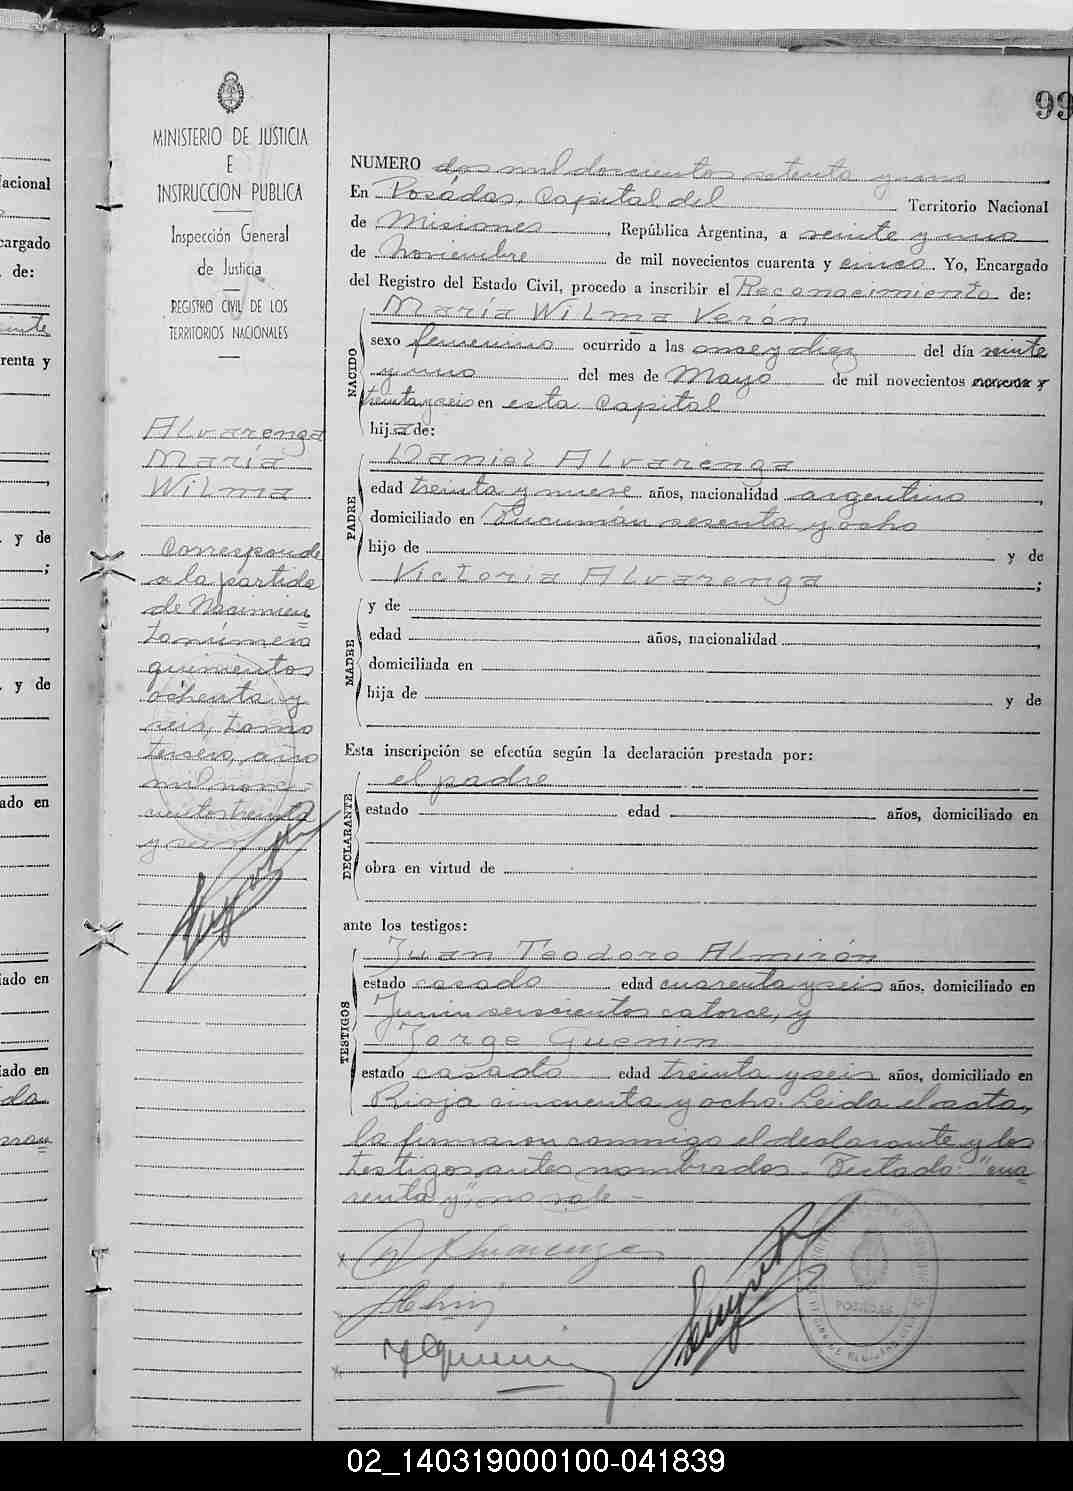 99
MINISTERIO DE JUSTICIA
E
INSTRUCCION PUBLICA
Inspección General
de Justicia
REGISTRO CIVIL DE LOS
TERRITORIOS NACIONALES
Alvarenga
María
Wilma
Corresponde
a la partida
de Nacimien=
to número
quinientos
ochenta y
seis, tomo
tercero, año
mil nove-
cientos treinta
y seis.
NUMERO dos mil doscientos setenta y uno
En Posadas, Capital del Territorio Nacional
de Misiones, República Argentina, a veinte y uno
de Noviembre de mil novecientos cuarenta y cinco. Yo, Encargado
del Registro del Estado Civil, procedo a inscribir el Reconocimiento de:
María Wilma Verón
NACIDO
sexo femenino ocurrido a las once y diez del día veinte
y uno del mes de Mayo de mil novecientos
treinta y seis en esta Capital
hija de:
PADRE
Daniel Alvarenga
edad treinta y nueve años, nacionalidad argentino,
domiciliado en Tucumán sesenta y ocho
hijo de y de
Victoria Alvarenga;
MADRE
y de
edad años, nacionalidad,
domiciliada en
hija de y de
Esta inscripción se efectúa según la declaración prestada por:
DECLARANTE
el padre
estado edad años, domiciliado en
obra en virtud de
ante los testigos:
TESTIGOS
Juan Teodoro Almirón
estado casado edad cuarenta y seis años, domiciliado en
Junín seiscientos catorce, y
Jorge Guenin
estado casado edad treinta y seis años, domiciliado en
Rioja cincuenta y ocho. Leída el acta,
la firmaron conmigo el declarante y los
testigos antes nombrados. Testado: "cua=
renta y", no vale-
D Alvarenga
JGuenin
POSADAS
acional
cargado
de:
renta y
y de
;
,
y de
ado en
iado en
iado en
02_140319000100-041839